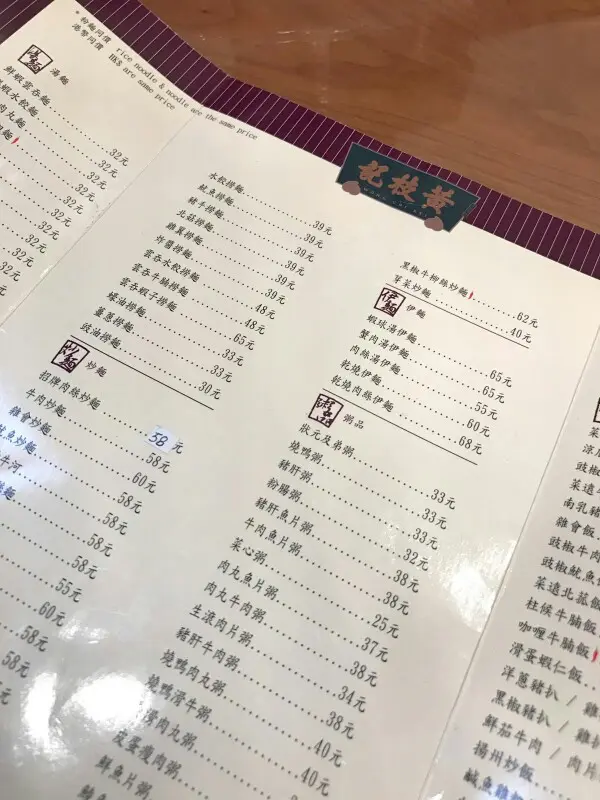 * 粉麵同價 rice noodle & noodle are the same price
港幣同價 HK$ are same price
湯麵
鮮蝦雲吞麵 32元
蝦水餃麵 32元
肉丸麵 32元
32元
32元
32元
32元
水餃撈麵 39元
鯪魚撈麵 39元
豬手撈麵 39元
北菇撈麵 39元
雞翼撈麵 39元
炸醬撈麵 39元
雲吞水餃撈麵 48元
雲吞牛腩撈麵 48元
雲吞蝦子撈麵 65元
蠔油撈麵 33元
薑蔥撈麵 33元
豉油撈麵 30元
炒麵
招牌肉絲炒麵 58元
牛肉炒麵 58元
雜會炒麵 60元
魷魚炒麵 58元
牛河 58元
58元
55元
60元
58元
58元
黃枝記
WONG CHI KEI
黑椒牛柳絲炒麵 62元
芽菜炒麵 40元
伊麵
伊麵
蝦球湯伊麵 65元
蟹肉湯伊麵 65元
肉絲湯伊麵 55元
乾燒伊麵 60元
乾燒肉絲伊麵 68元
粥品
狀元及弟粥 33元
燒鴨粥 33元
豬肝粥 33元
粉腸粥 32元
豬肝魚片粥 38元
牛肉魚片粥 38元
菜心粥 25元
肉丸魚片粥 37元
肉丸牛肉粥 38元
生滾肉片粥 34元
豬肝牛肉粥 38元
燒鴨肉丸粥 40元
燒鴨滑牛粥 40元
肉丸粥
皮蛋瘦肉粥
鮮魚片粥
豉椒
菜遠
南乳豬
雜會飯
豉椒牛肉
豉椒魷魚
菜遠北菇飯
柱侯牛腩飯
咖喱牛腩飯
滑蛋蝦仁飯
洋蔥豬扒 / 雞
黑椒豬扒 / 雞扒
鮮茄牛肉 / 肉片
揚州炒飯
鹹魚雞